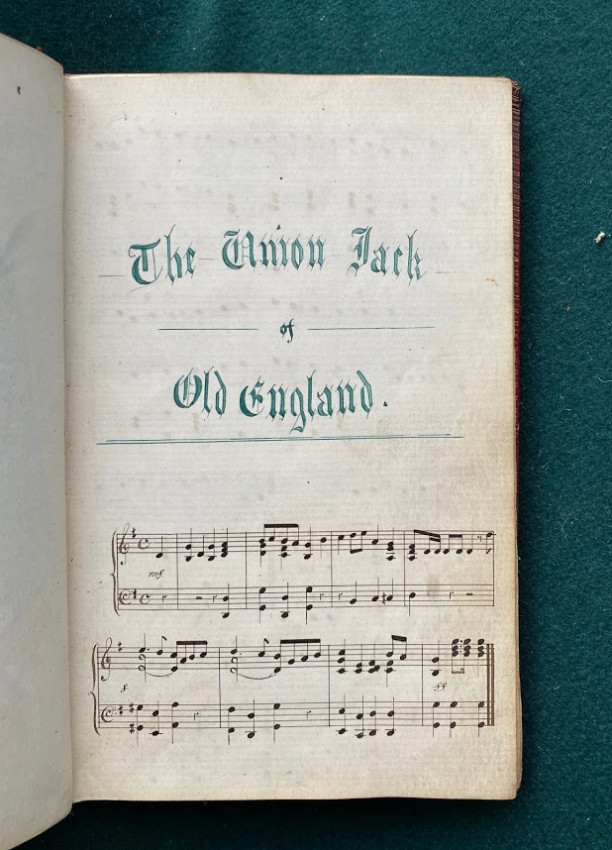 The Union Jack
of
Old England.
mf
f
ff